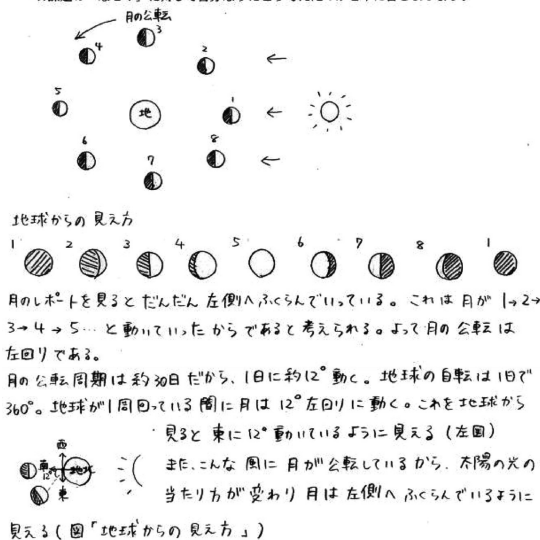 月の公転
3
4
2
5
地
1
6
8
7
地球からの見え方
1 2 3 4 5 6 7 8 1
月のレポートを見るとだんだん左側へふくらんでいっている。これは月が1→2→
3→4→5…と動いていったからであると考えられる。よって月の公転は
左回りである。
月の公転周期は約30日だから、1日に約12°動く。地球の自転は1日で
360°。地球が1周回っている間に月は12°左回りに動く。これを地球から
見ると東に12°動いているように見える(左図)
また、こんな風に月が公転しているから、太陽の光の
当たり方が変わり月は左側へふくらんでいるように
見える(図「地球からの見え方」)
西
東
12°
地球
東